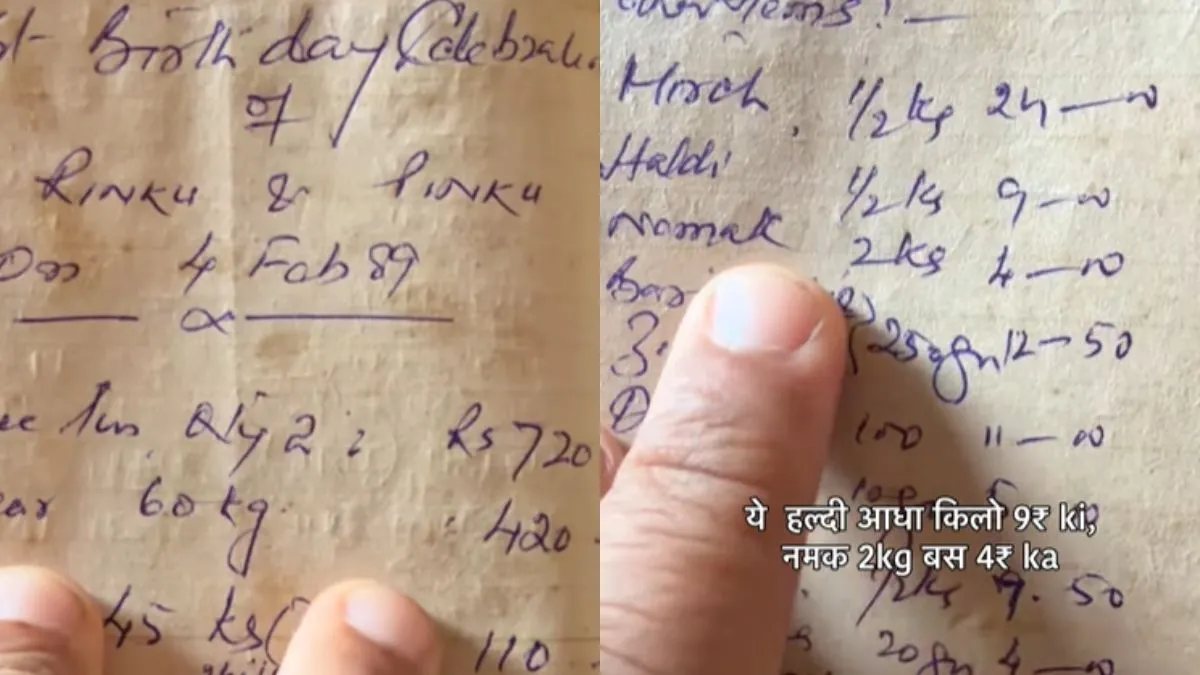 Birthday Celebrati
of
RINKU & PINKU
On 4 Feb 89
Qty 2 : Rs 720
60 kg : 420
45 kg ( 110
Mirch 1/2 kg 24—00
Haldi 1/2 kg 9—00
Namak 2 kg 4—00
250 gm 12—50
100 11—00
10g 5
ये हल्दी आधा किलो 9₹ ki,
नमक 2kg बस 4₹ ka
1/2 kg 9.50
20 gm 4—00